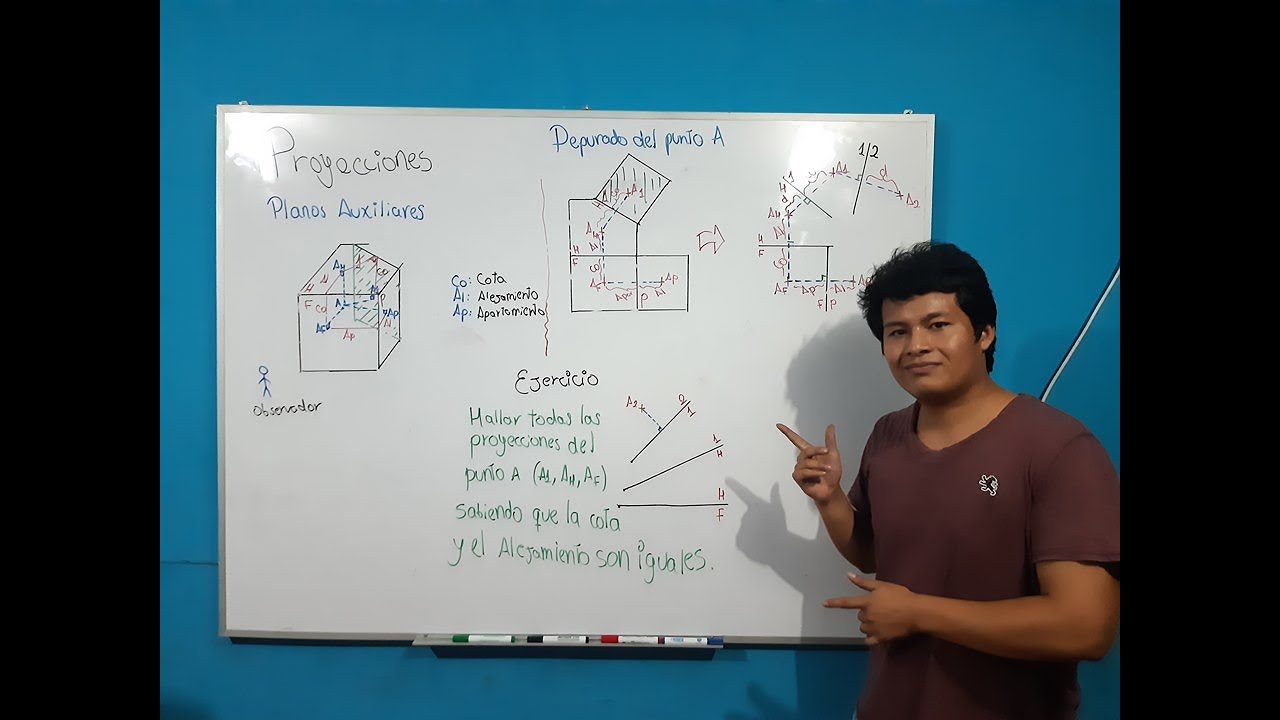 Proyecciones
Planos Auxiliares
H
1
F
Co
Ap
Observador
Co: Cota
Al: Alejamiento
Ap: Apartamiento
Depurado del punto A
A1
AH
H
F
AF
Ap
P
1/2
H
1
A1
d
A2
AH
H
F
AF
Ap
Al
F
P
Ejercicio
Hallar todas las
proyecciones del
punto A (A1, AH, AF)
sabiendo que la cota
y el Alejamiento son iguales.
A2
2
1
1
H
H
F